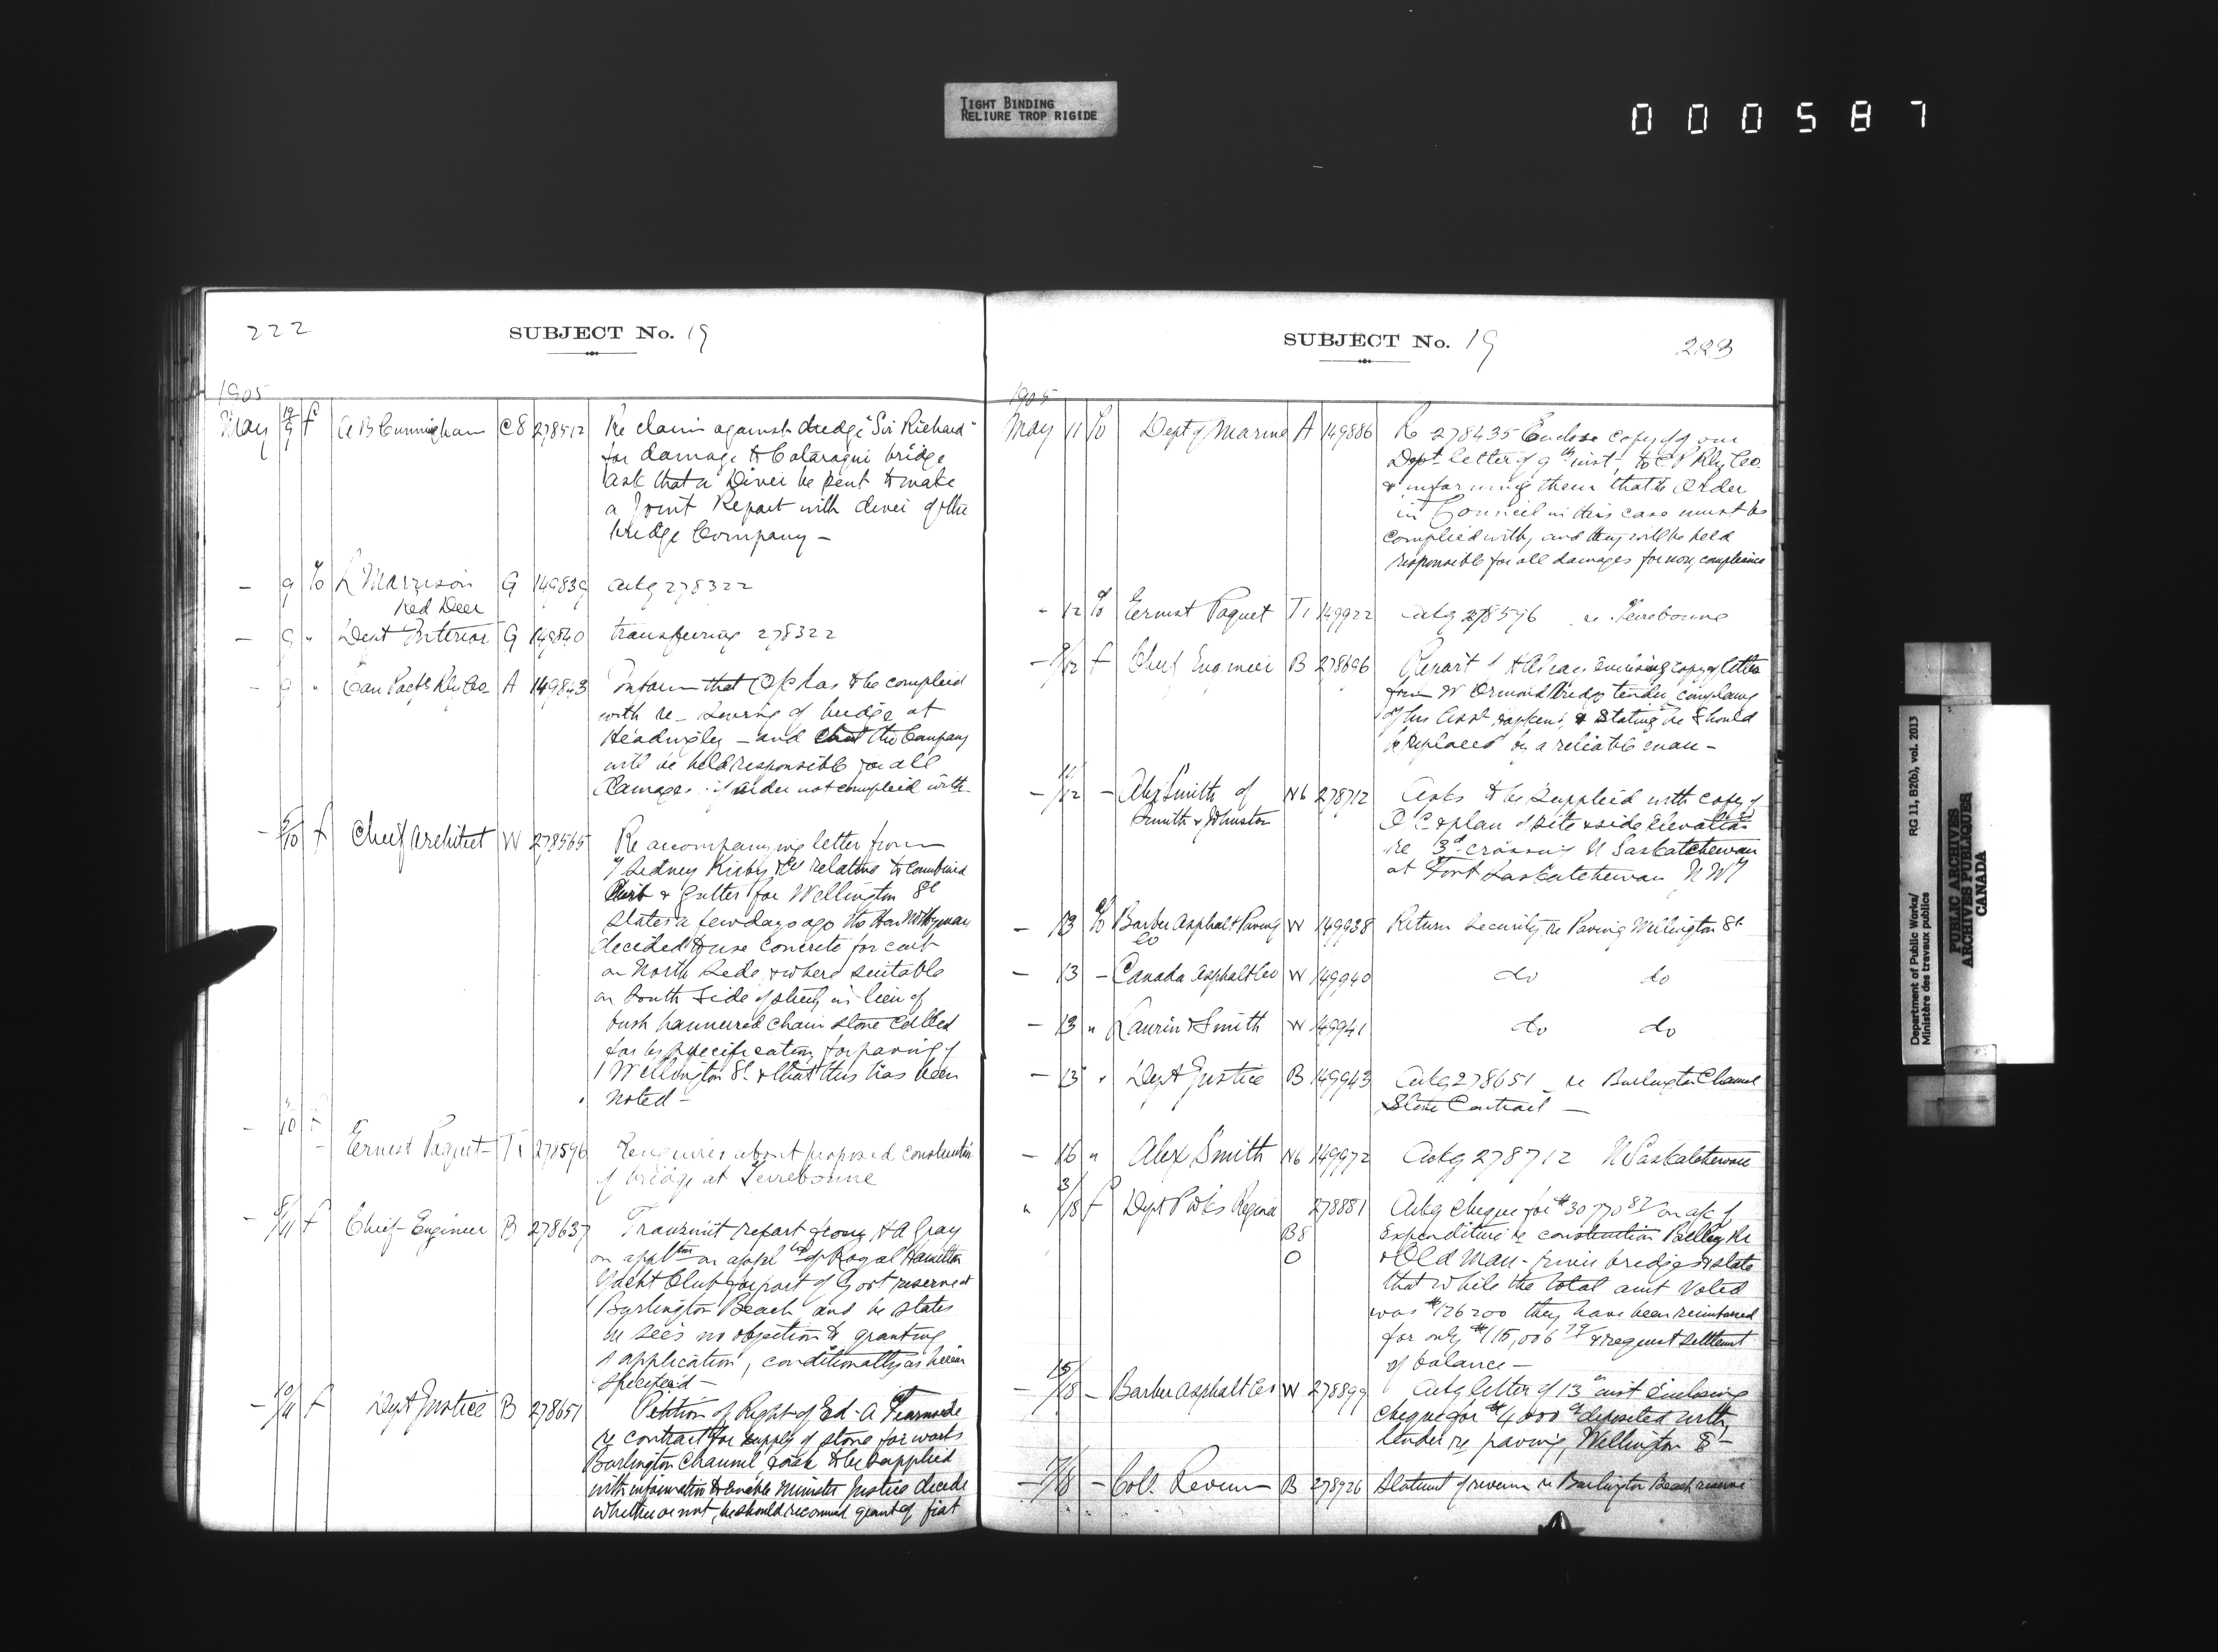 TIGHT BINDING
RELIURE TROP RIGIDE
000587
222
SUBJECT No. 19
1905
May 19/9 f A B Cunningham C8 278512 Re claim against dredge "Sir Richard"
for damage to Cataraqui bridge
ask that a Diver be sent to make
a Joint Report with diver of the
bridge Company -
- 9 To L Marrison G 149839 ackg 278322
Red Deer
- 9 " Dept Interior G 149840 transferring 278322
- 9 " Can Pacfc Rly Co A 149843 Inform that O/C has to be complied
with re - of bridge at
Headingley - and that the Company
will be held responsible for all
Damages if order not complied with
- 5/10 f Chief Architect W 278565 Re accompanying letter from
Sidney Kirby relative to combined
Curb & Gutter for Wellington St
states a few days ago the Hon Mr Hyman
decided to use concrete for curb
on North Side & where suitable
on South Side of street in lieu of
bush hammered stone called
for by specification for paving of
Wellington St. & that this has been
noted -
- 10 f
Ernest Paquet T1 278596 Enquires about proposed construction
of bridge at Terrebonne
- 8/11 f Chief Engineer B 278637 Transmit report from H A Gray
on appltn on appl of Royal Hamilton
Yacht Club for part of Govt reserve at
Burlington Beach and he states
he sees no objection to granting
application, conditionally as herein
specified -
- 10/11 f Dept Justice B 278651 Petition of Right of Ed. A Fearnside
re contract for supply of stone for works
Burlington Channel & ask to be supplied
with information to enable Minister Justice decide
whether or not, he should recommend grant of fiat
SUBJECT No. 19
223
1905
May 11 To Dept of Marine A 149886 Re 278435 Enclose copy of our
Dept letter of 9th inst, to C P Rly Co.
& informing them that the Order
in Council in this case must be
complied with, and they will be held
responsible for all damages for non compliance
- 12 To Ernest Paquet T1 149922 ackg 278596 re Terrebonne
- 12 f Chief Engineer B 278696 Report enclosing copy of letter
from W Ormond Bridge tender complaining
of his Asst & stating he should
be replaced by a reliable man -
- 11/12 - Alex Smith of N6 278712 Asks to be supplied with copy of
Smith & Johnston O/C & plan of site & side elevation
re 3d crossing N Saskatchewan
at Fort Saskatchewan N W T
- 13 To Barber Asphalt Paving W 149938 Return security re Paving Wellington St.
Co
- 13 - Canada Asphalt Co W 149940 do do
- 13 " Laurin & Smith W 149941 do do
- 13 " Dept Justice B 149943 Ackg 278651 - re Burlington Channel
Stone Contract -
- 16 " Alex Smith N6 149972 Ackg 278712 N Saskatchewan
" 3/18 f Dept P Wks Regina 278881 Ackg cheque for $30770 on a/c of
B8 Expenditure re construction Belley Rr
O & Old Man - river bridges & state
that while the total amt voted
was $126200 they have been reimbursed
for only $115,006 & request settlement
of balance -
- 15/18 - Barber Asphalt Co W 278899 Ackg letter of 13th inst enclosing
cheque for $4000 deposited with
tender re paving Wellington St -
- 17/18 - Coll. Revenue B 278926 Statement of revenue re Burlington Beach reserve
Department of Public Works/
Ministère des travaux publics
RG 11, B2(b), vol. 2013
PUBLIC ARCHIVES
ARCHIVES PUBLIQUES
CANADA